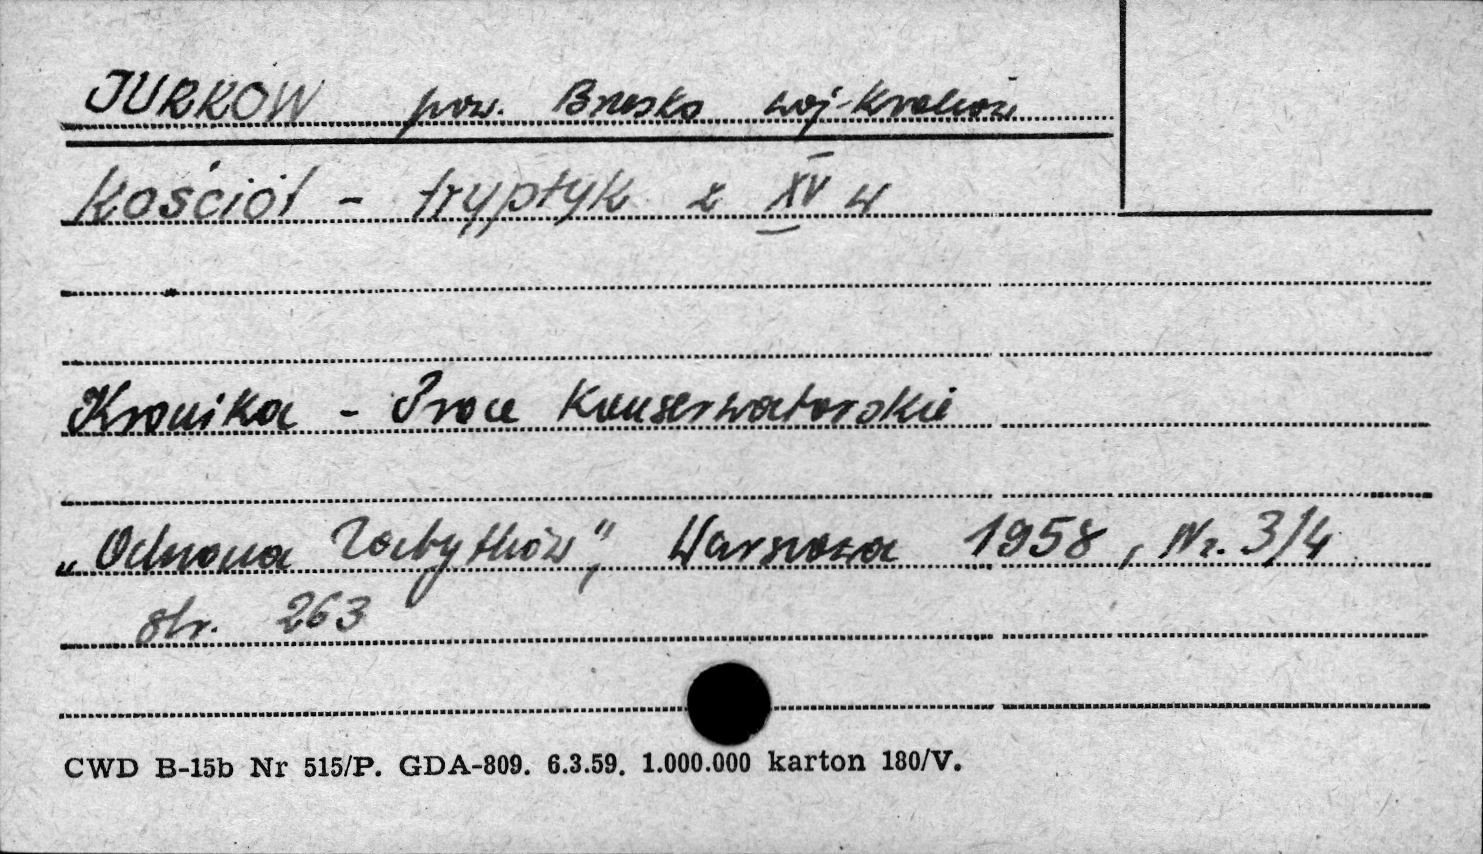 JURKOW pow. Brzesko woj-Kraków
Kościół - tryptyk z XV w
Kronika - Prace Konserwatorskie
„Ochrona Zabytków”, Warszawa 1958, Nr. 3/4
str. 263
CWD B-15b Nr 515/P. GDA-809. 6.3.59. 1.000.000 karton 180/V.